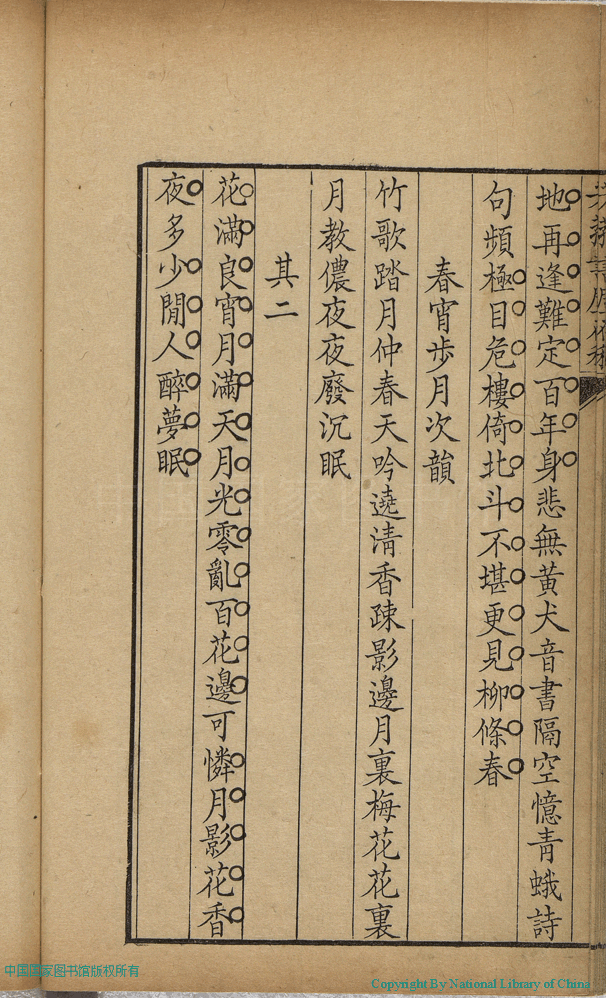 地再逢難定百年身悲無黃犬音書隔空憶青蛾詩
句頻極目危樓倚北斗不堪更見柳條春
春宵步月次韻
竹歌踏月仲春天吟遶淸香疎影邊月裏梅花花裏
月教儂夜夜廢沉眠
其二
花滿良宵月滿天月光零亂百花邊可憐月影花香
夜多少閒人醉夢眠
中国国家图书馆版权所有
Copyright By National Library of China